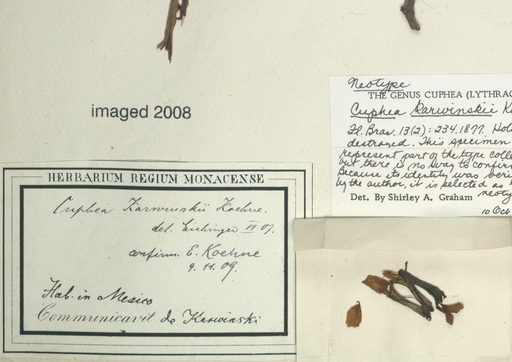 imaged 2008
Neotype
THE GENUS CUPHEA (LYTHRAC
Cuphea karwinskii K
Fl. Bras. 13(2): 234. 1877. Hol
destroyed. This specimen
represent part of the type colle
but there is no way to confirm
Because its identity was veri
by the author, it is selected as
neoty
Det. By Shirley A. Graham
10 Oct
HERBARIUM REGIUM MONACENSE
Cuphea Karwinskii Koehne.
det. IV 07.
confirm. E. Koehne
9. 11. 09.
Hab. in Mexico
Communicavit de Karwinski